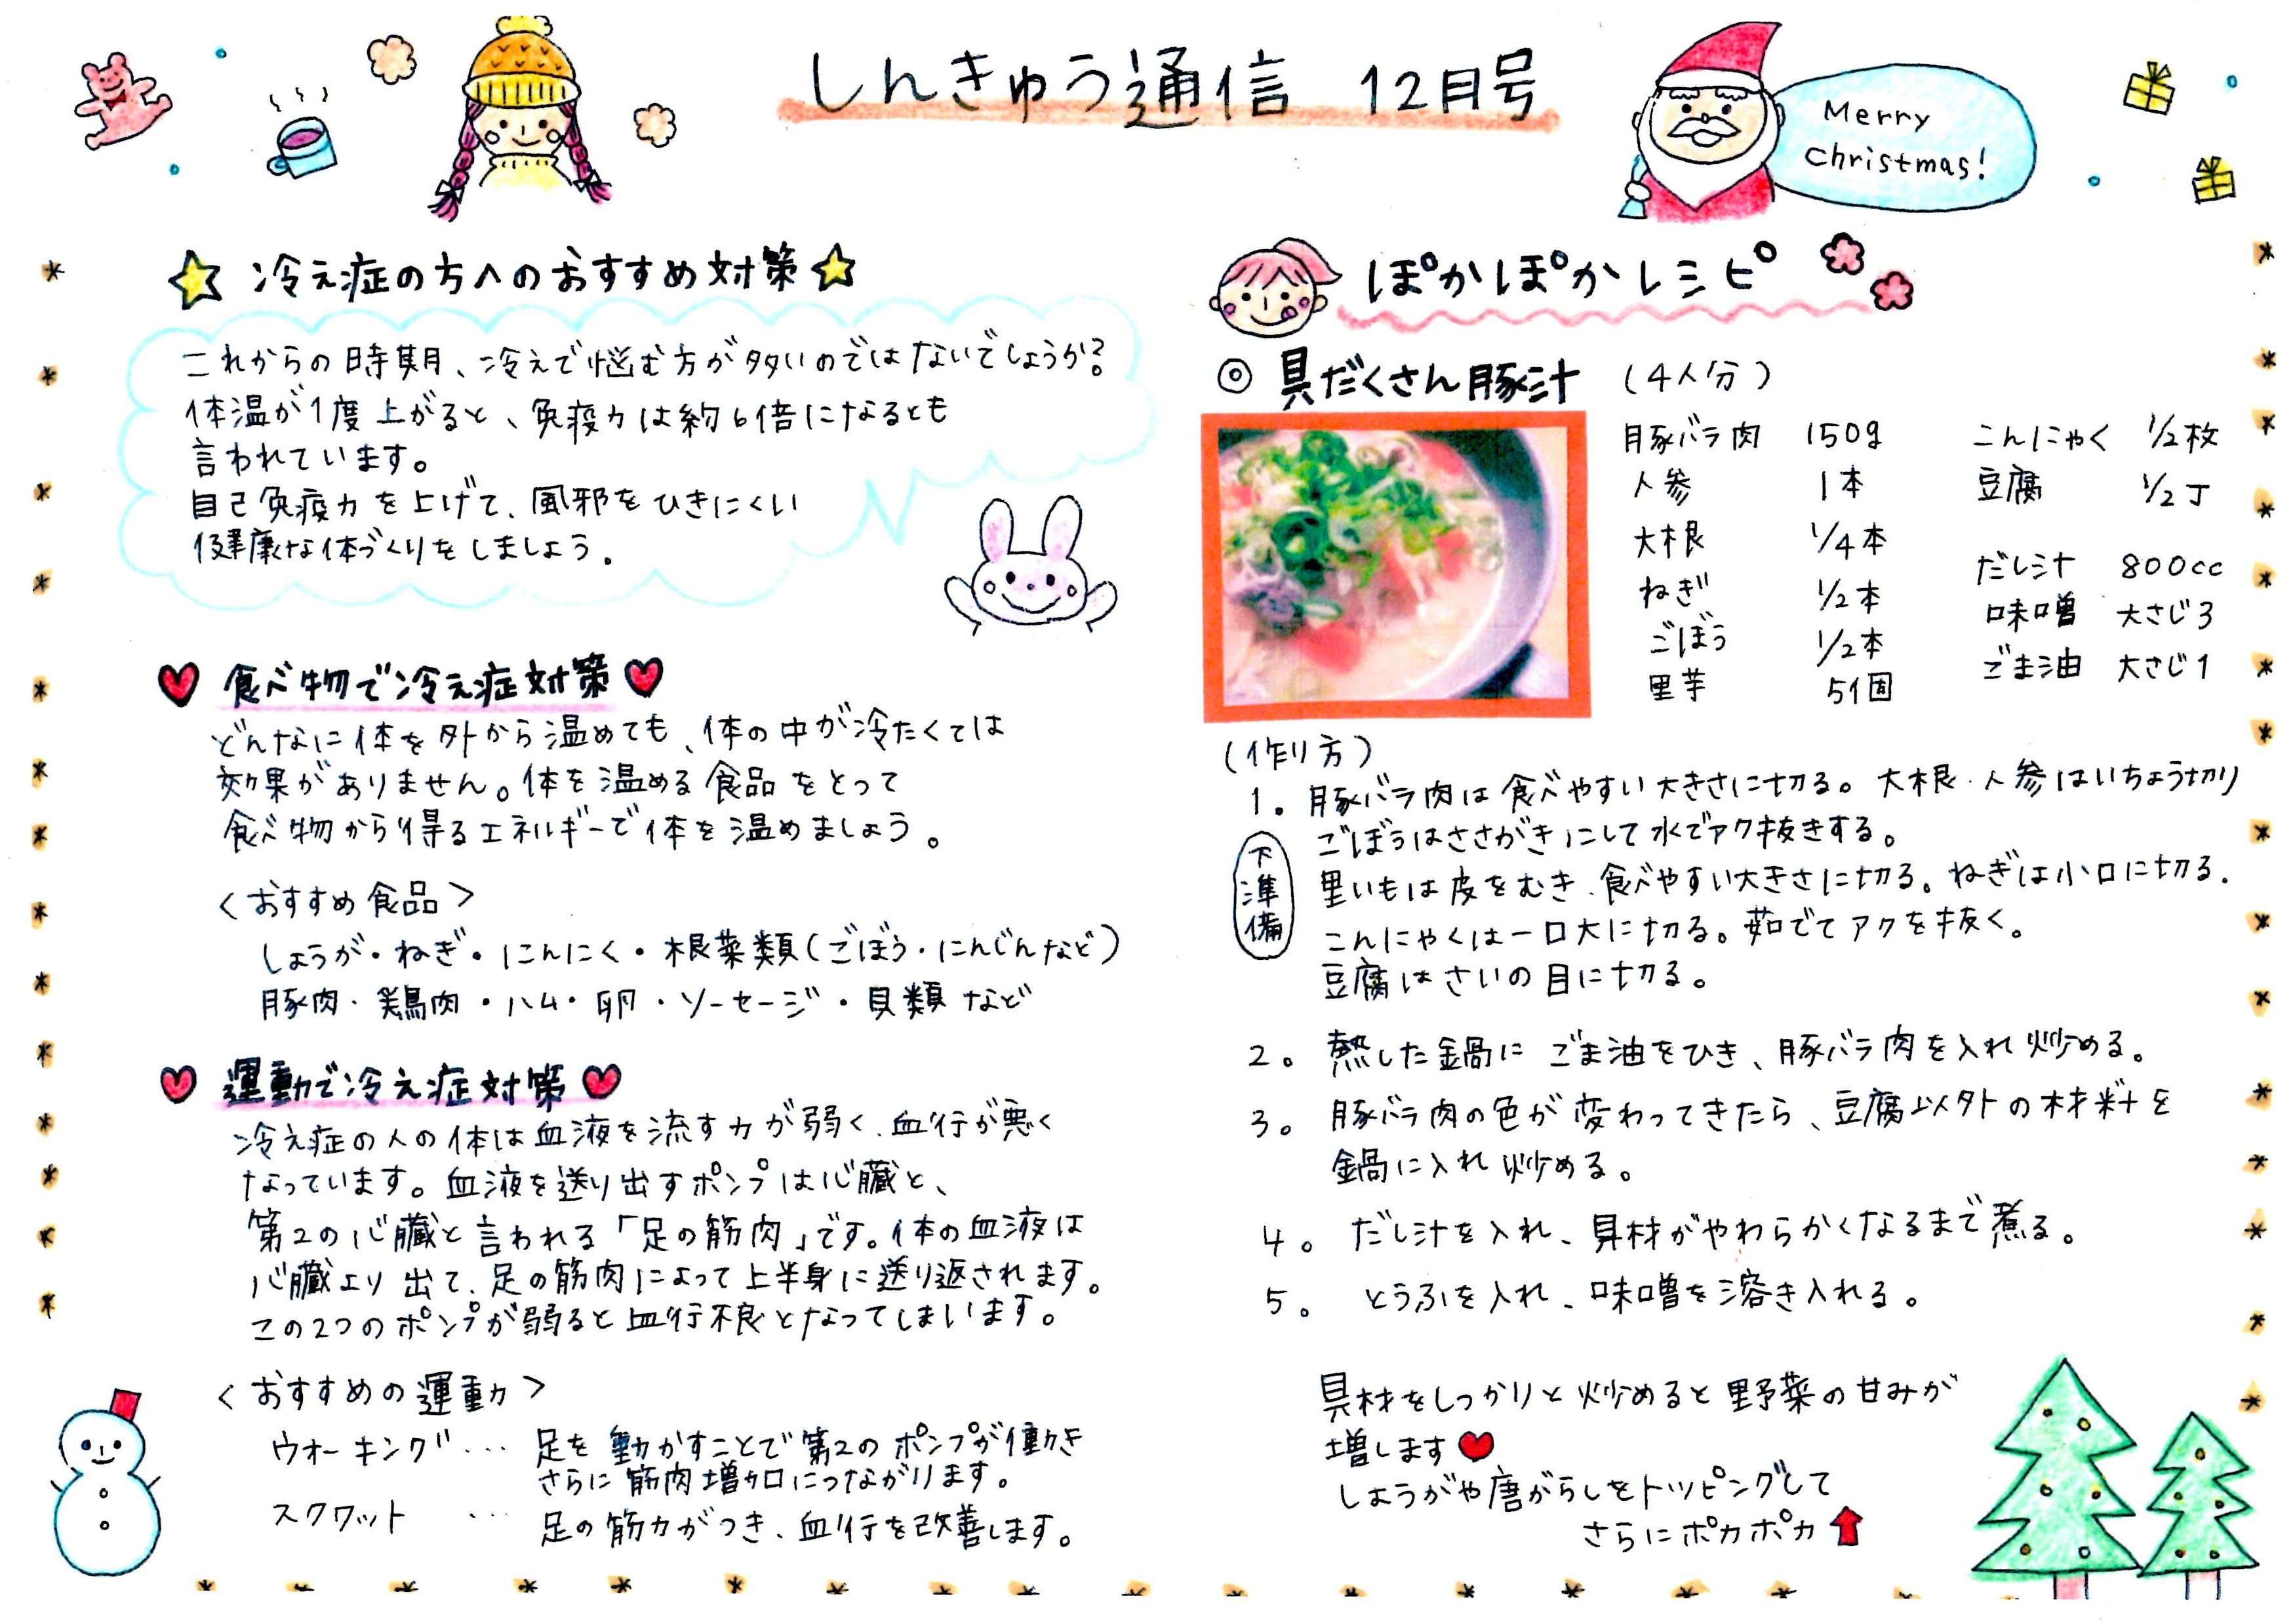 しんきゅう通信 12月号
Merry
christmas!
冷え症の方へのおすすめ対策
これからの時期、冷えで悩む方が多いのではないでしょうか?
体温が1度上がると、免疫力は約6倍になるとも
言われています。
自己免疫力を上げて、風邪をひきにくい
健康な体づくりをしましょう。
食べ物で冷え症対策
どんなに体を外から温めても、体の中が冷たくては
効果がありません。体を温める食品をとって
食べ物から得るエネルギーで体を温めましょう。
<おすすめ食品>
しょうが・ねぎ・にんにく・根菜類(ごぼう・にんじんなど)
豚肉・鶏肉・ハム・卵・ソーセージ・貝類など
運動で冷え症対策
冷え症の人の体は血液を流す力が弱く、血行が悪く
なっています。血液を送り出すポンプは心臓と、
第2の心臓と言われる「足の筋肉」です。体の血液は
心臓より出て、足の筋肉によって上半身に送り返されます。
この2つのポンプが弱ると血行不良となってしまいます。
<おすすめの運動>
ウォーキング… 足を動かすことで第2のポンプが働き
さらに筋肉増加につながります。
スクワット … 足の筋力がつき、血行を改善します。
ぽかぽかレシピ
◎ 具だくさん豚汁 (4人分)
豚バラ肉 150g こんにゃく 1/2枚
人参 1本 豆腐 1/2丁
大根 1/4本
ねぎ 1/2本 だし汁 800cc
ごぼう 1/2本 味噌 大さじ3
里芋 5個 ごま油 大さじ1
(作り方)
1。豚バラ肉は食べやすい大きさに切る。大根・人参はいちょう切り
ごぼうはささがきにして水でアク抜きする。
下準備
里いもは皮をむき、食べやすい大きさに切る。ねぎは小口に切る。
こんにゃくは一口大に切る。茹でてアクを抜く。
豆腐はさいの目に切る。
2。熱した鍋に ごま油をひき、豚バラ肉を入れ炒める。
3。豚バラ肉の色が変わってきたら、豆腐以外の材料を
鍋に入れ炒める。
4。だし汁を入れ、具材がやわらかくなるまで煮る。
5。とうふを入れ、味噌を溶き入れる。
具材をしっかりと炒めると野菜の甘みが
増します
しょうがや唐がらしをトッピングして
さらにポカポカ